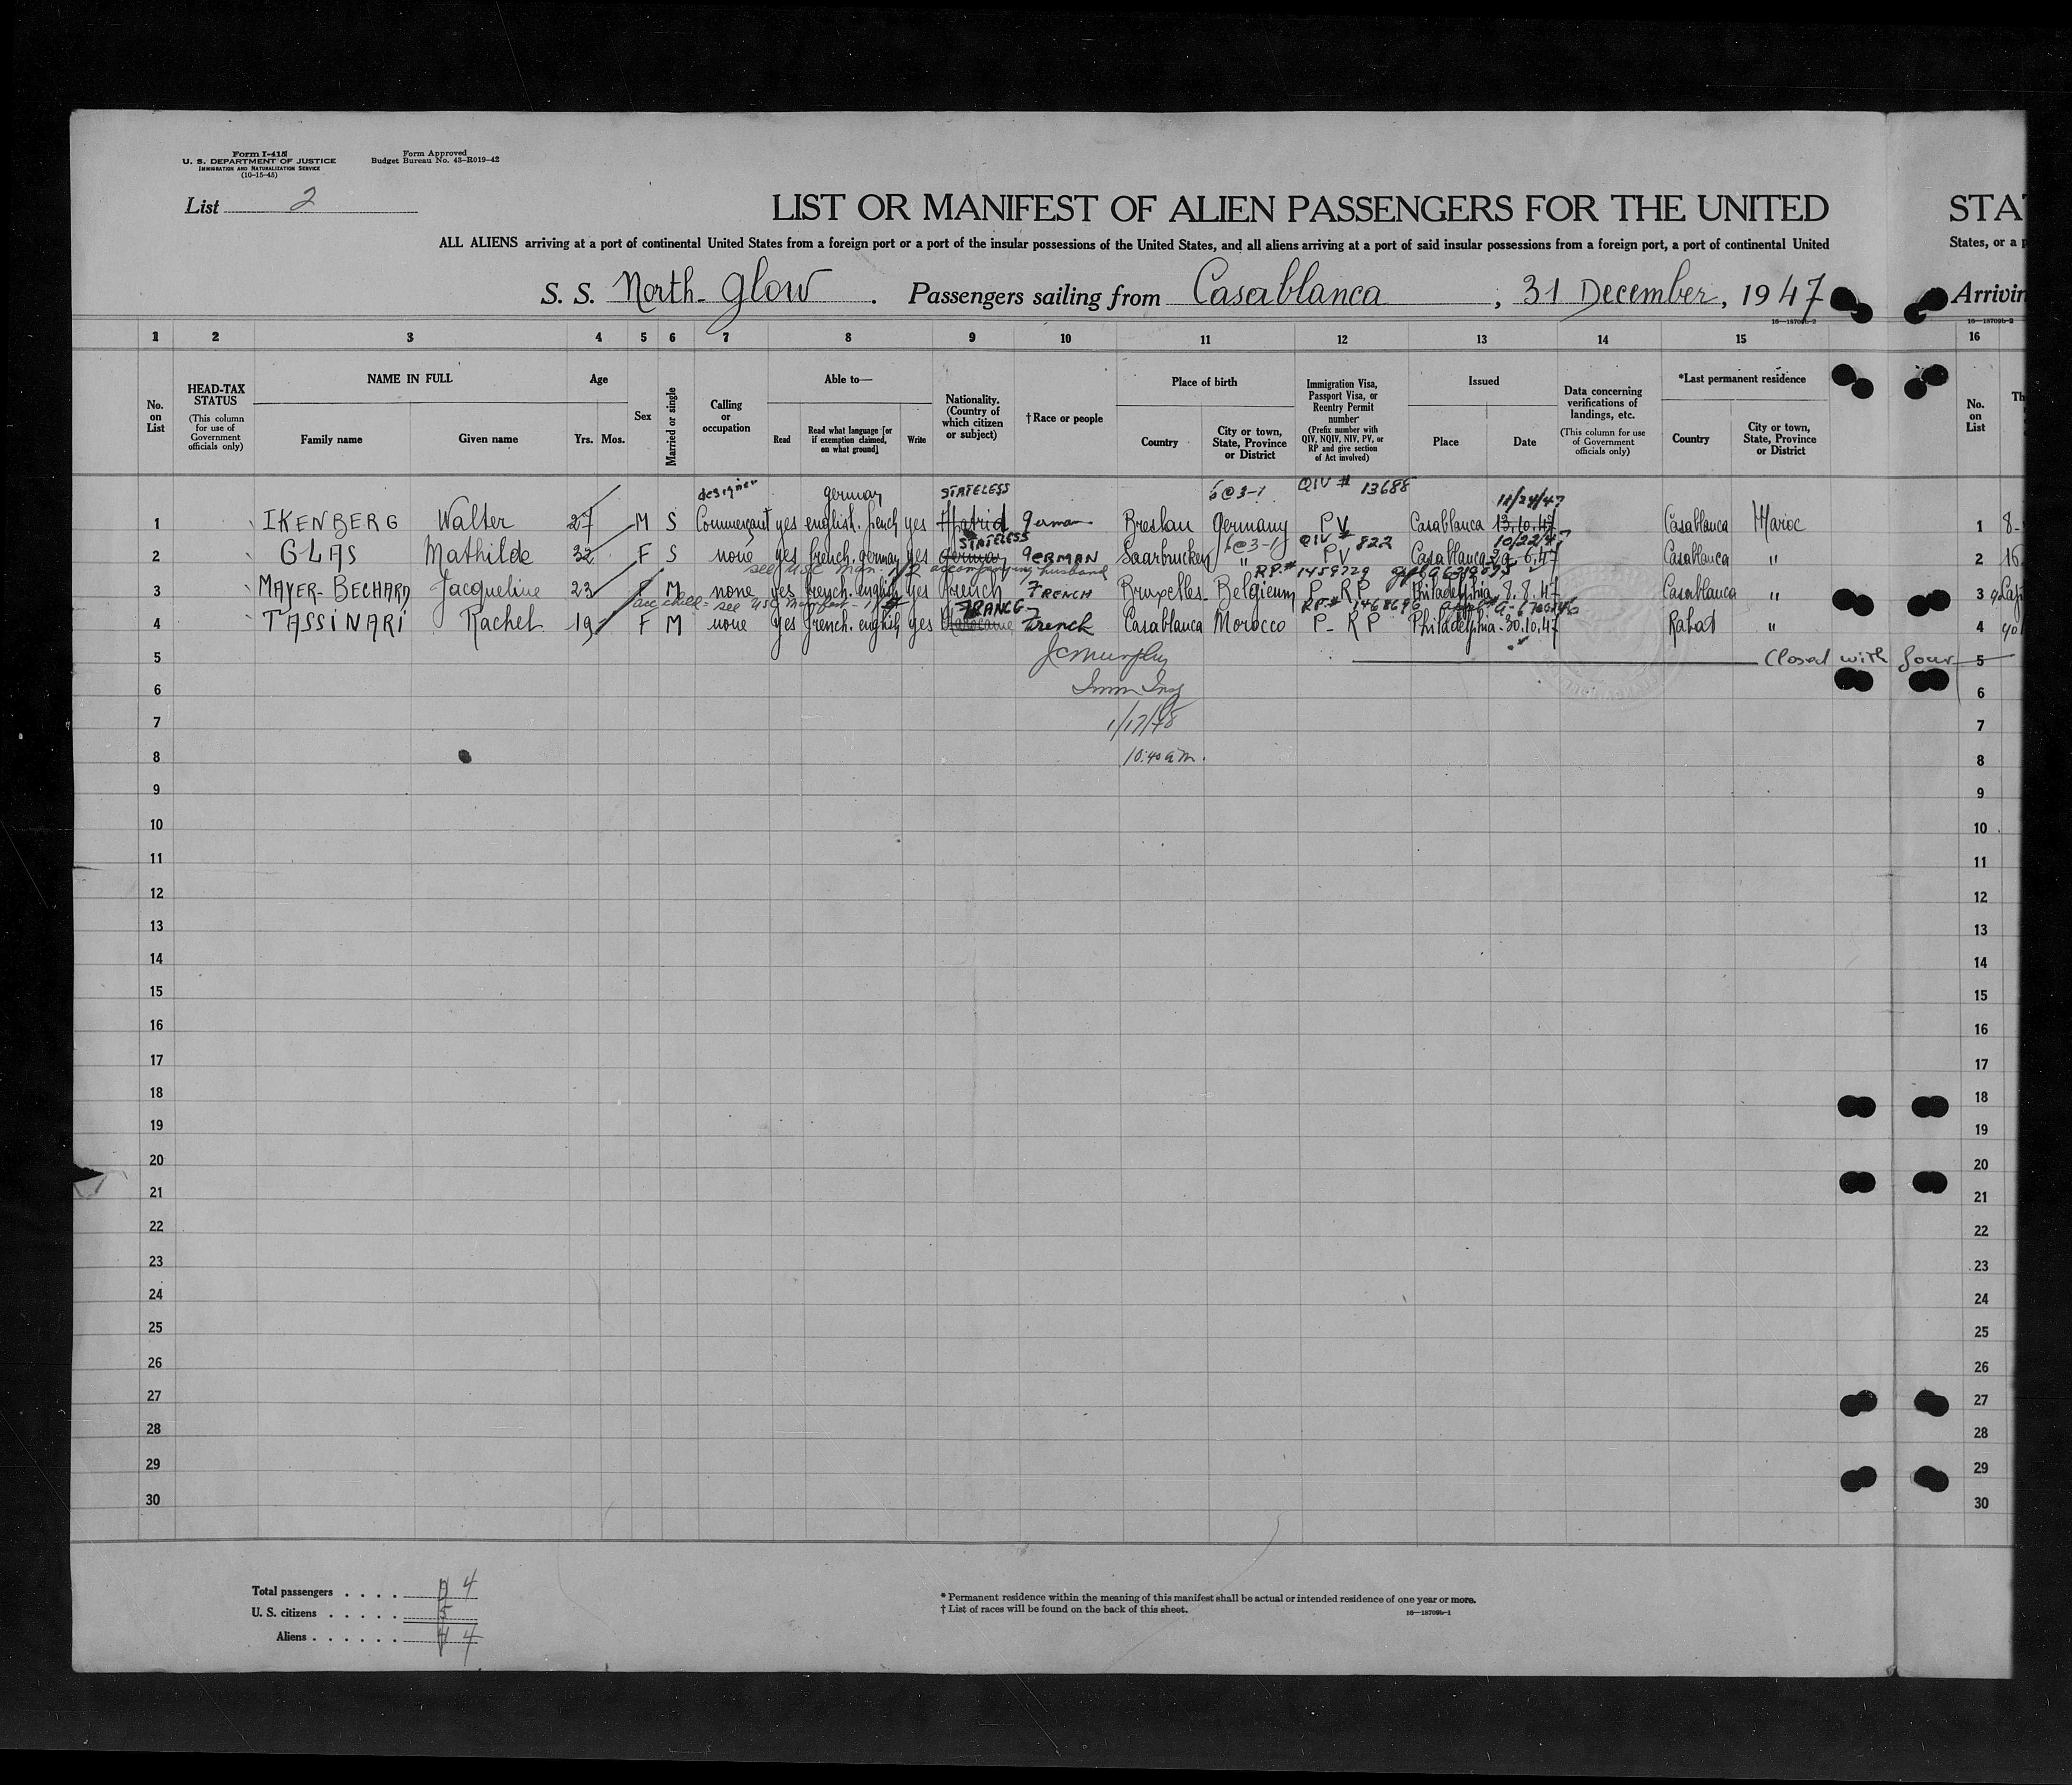 Form I-415
U. S. DEPARTMENT OF JUSTICE
IMMIGRATION AND NATURALIZATION SERVICE
(10-15-45)
Form Approved
Budget Bureau No. 43-R019-42
List 2
LIST OR MANIFEST OF ALIEN PASSENGERS FOR THE UNITED
STA
ALL ALIENS arriving at a port of continental United States from a foreign port or a port of the insular possessions of the United States, and all aliens arriving at a port of said insular possessions from a foreign port, a port of continental United
States, or a p
S. S. North-Glow. Passengers sailing from Casablanca, 31 December, 1947
Arrivin
16—18709b-2
16—18709b-2
1 2 3 4 5 6 7 8 9 10 11 12 13 14 15 16
No. on List
HEAD-TAX STATUS
(This column for use of Government officials only)
NAME IN FULL
Family name Given name
Age
Yrs. Mos.
Sex
Married or single
Calling or occupation
Able to—
Read
Read what language [or if exemption claimed, on what ground]
Write
Nationality. (Country of which citizen or subject)
†Race or people
Place of birth
Country
City or town, State, Province or District
Immigration Visa, Passport Visa, or Reentry Permit number
(Prefix number with QIV, NQIV, NIV, PV, or RP and give section of Act involved)
Issued
Place Date
Data concerning verifications of landings, etc.
(This column for use of Government officials only)
*Last permanent residence
Country
City or town, State, Province or District
No. on List
Th
designer german STATELESS 6@3-1 QIV # 13688 11/24/47
1 IKENBERG Walter 27 M S Commerçant yes english. french yes german Breslau Germany PV Casablanca 13.10.47 Casablanca Maroc 1 8-
STATELESS 6@3-1 QIV # 822 10/22/47
2 GLAS Mathilde 32 F S none yes french. german yes german GERMAN Saarbucken " PV Casablanca 6.47 Casablanca " 2 16
see USC man. accompanying husband RP.# 1459729
3 MAYER-BECHARD Jacqueline 23 F M none yes french. english yes french FRENCH Bruxelles- Belgieum P- RP Philadelphia 8.8.47 Casablanca " 3
acc child- see USC manifest FRANCE RP.# 1468696
4 TASSINARI Rachel 19 F M none yes french. english yes Marocaine French Casablanca Morocco P- RP Philadelphia-30.10.47 Rabat " 4
5 JCMurphy Closed with four 5
6 Imm Insp 6
7 1/17/48 7
8 10:40 am. 8
9 9
10 10
11 11
12 12
13 13
14 14
15 15
16 16
17 17
18 18
19 19
20 20
21 21
22 22
23 23
24 24
25 25
26 26
27 27
28 28
29 29
30 30
Total passengers . . . . 4
U. S. citizens . . . . . 5
Aliens . . . . . . 4
* Permanent residence within the meaning of this manifest shall be actual or intended residence of one year or more.
† List of races will be found on the back of this sheet.
16—18709b-1